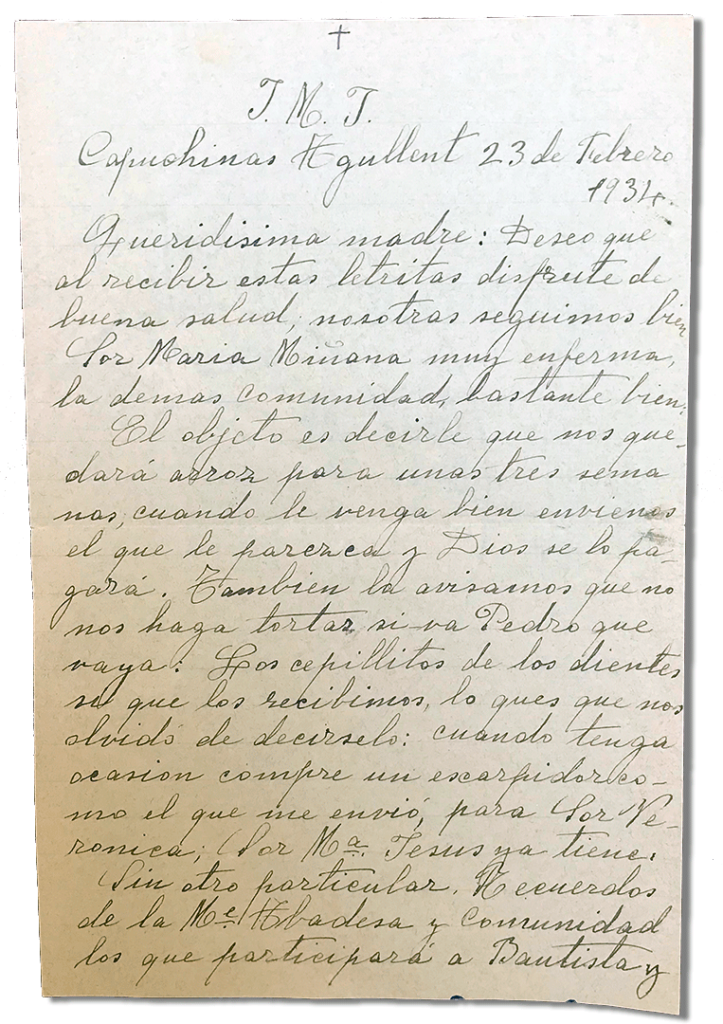 +
J. M. J.
Capuchinas Agullent 23 de Febrero
1934.
Queridisima madre: Deseo que
al recibir estas letritas disfrute de
buena salud, nosotras seguimos bien
Sor Maria Miñana muy enferma,
la demas comunidad, bastante bien.
El objeto es decirle que nos que-
dará arroz para unas tres sema
nas, cuando le venga bien envienos
el que le parezca y Dios se lo pa-
gará. Tambien la avisamos que no
nos haga tortas, si va Pedro que
vaya: Los cepillitos de los dientes
sa que los recibimos, lo ques que nos
olvidó de decirselo: cuando tenga
ocasion compre un escarpidor co-
mo el que me envió, para Sor Ve-
ronica; Sor Mª. Jesus ya tiene.
Sin otro particular. Recuerdos
de la Me. Abadesa y Comunidad
los que participará a Bautista y